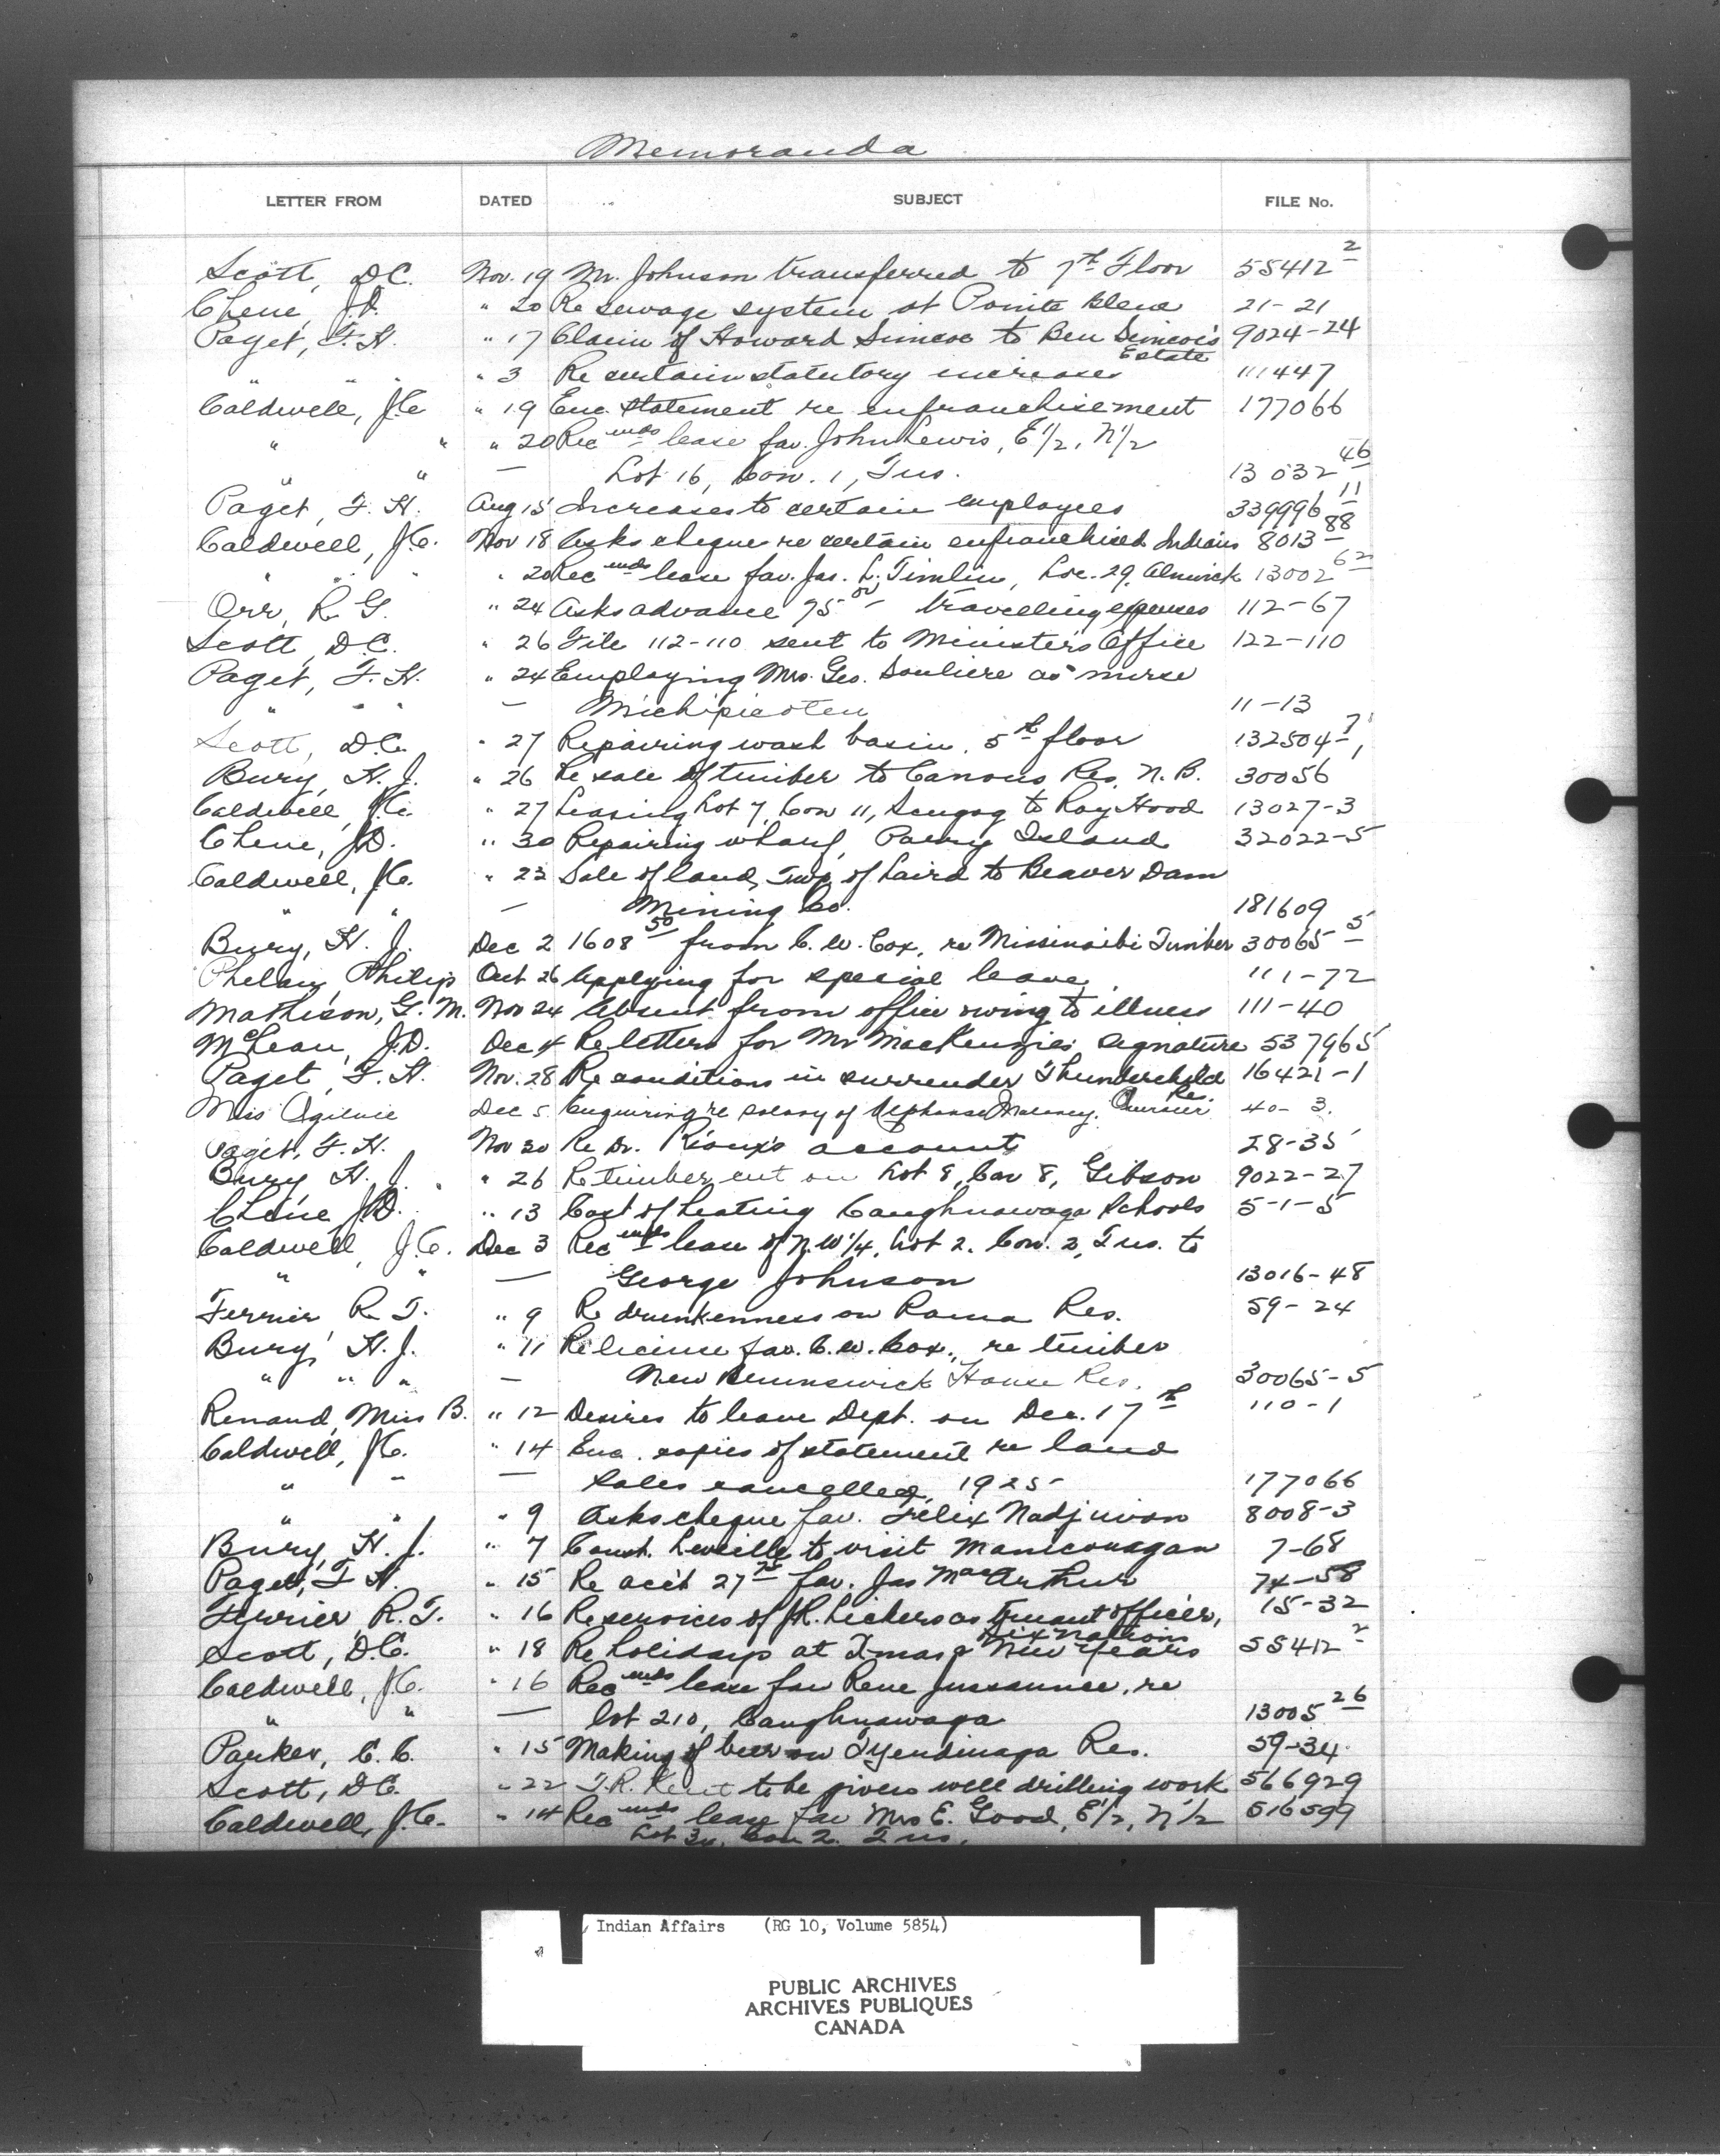 Memoranda
LETTER FROM DATED SUBJECT FILE No.
Scott, D.C. Nov. 19 Mr. Johnson transferred to 7th Floor 55412 2
Chene, J.D. " 20 Re sewage system at Pointe Bleue 21-21
Paget, F.H. " 17 Claim of Howard Simcoe to Ben Simcoe's Estate 9024-24
" " " " 3 Re certain statutory increases 111447
Caldwell, J.C. " 19 Enc. statement re enfranchisement 177066
" " " 20 Recmds lease fav. John Lewis, E1/2, N1/2
" " — Lot 16, Con. 1, Tus. 13032 46
Paget, F.H. Aug 15 Increases to certain employees 339996 11
Caldwell, J.C. Nov 18 Asks cheque re certain enfranchised Indians 8013 88
" " " " 20 Recmds lease fav. Jas. L. Timlin, Loc. 29, Alnwick 13002 62
Orr, R.G. " 24 Asks advance 75 00 travelling expenses 112-67
Scott, D.C. " 26 File 112-110 sent to Minister's Office 122-110
Paget, F.H. " 24 Employing Mrs. Geo. Souliere as nurse
" " " — Michipicoten 11-13
Scott, D.C. " 27 Repairing wash basin, 5th floor 132504-7
Bury, H.J. " 26 Re sale of timber to Canous Res. N.B. 30056
Caldwell, J.C. " 27 Leasing Lot 7, Con 11, Scugog to Roy Hood 13027-3
Chene, J.D. " 30 Repairing wharf, Parry Island 32022-5
Caldwell, J.C. " 23 Sale of land, Twp. of Laird to Beaver Dam
" " — Mining Co. 181609
Bury, H.J. Dec 2 1608 50 from C.W. Cox, re Missinaibi Timber 30065 5
Phelan, Philip Oct 26 Applying for special leave 111-72
Mathison, G.M. Nov 24 Absent from office owing to illness 111-40
McLean, J.D. Dec 4 Re letters for Mr MacKenzie's signature 537965
Paget, F.H. Nov. 28 Re conditions in surrender Thunderchild Res. 16421-1
Miss Ogilvie Dec 5 Enquiring re salary of Alphonse 40-3
Paget, F.H. Nov 30 Re Dr. Rioux's account 28-35
Bury, H.J. " 26 Re timber cut on Lot 8, Con 8, Gibson 9022-27
Chene J.D. " 13 Cost of heating Caughnawaga Schools 5-1-5
Caldwell, J.C. Dec 3 Recmds lease of N.W1/4, Lot 2. Con. 2, Tus. to
" " — George Johnson 13016-48
Ferrier R.T. " 9 Re drunkenness on Rama Res. 59-24
Bury, H.J. " 11 Re license fav. C.W. Cox, re timber
" " " — New Brunswick House Res. 30065-5
Renaud, Miss B. " 12 Desires to leave Dept. on Dec. 17th 110-1
Caldwell, J.C. " 14 Enc. copies of statement re land
" " — Sales cancelled, 1925 177066
" " " 9 Asks cheque fav. Felix Nadjiwon 8008-3
Bury, H.J. " 7 Const. Leveille to visit Manicouagan 7-68
Paget, F.H. " 15 Re acc't 27 75 fav. Jas MacArthur 74-58
Ferrier, R.T. " 16 Re services of J.R. Lickers as truant officer, Six Nations 15-32
Scott, D.C. " 18 Re holidays at Xmas & New Years 55412 2
Caldwell, J.C. " 16 Recmds lease fav Rene, re
" " — lot 210, Caughnawaga 13005 26
Parker, C.C. " 15 Making of beer on Tyendinaga Res. 59-34
Scott, D.C. " 22 T.R. Kent to be given well drilling work 566929
Caldwell, J.C. " 14 Recmds lease fav Mrs E. Good, E1/2, N1/2 516599
Con 2. Tus.
Indian Affairs (RG 10, Volume 5854)
PUBLIC ARCHIVES
ARCHIVES PUBLIQUES
CANADA